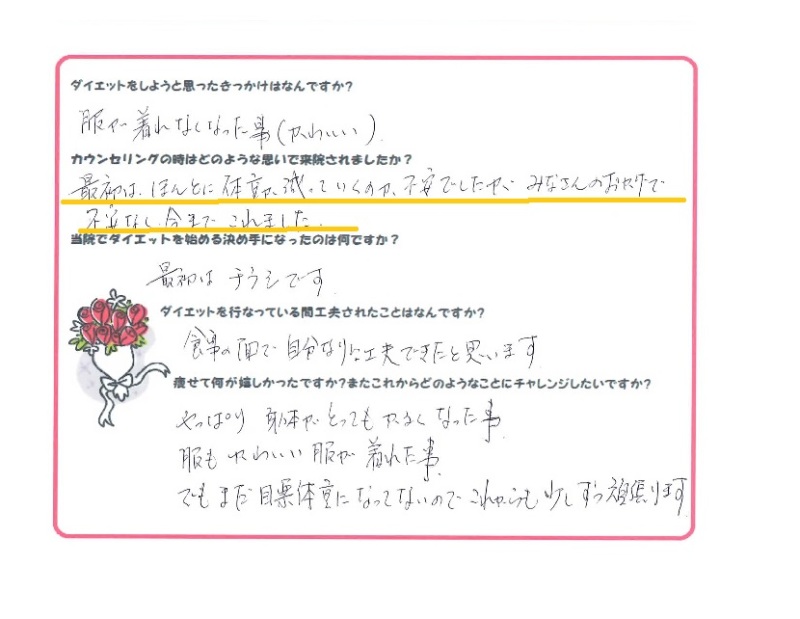 ダイエットをしようと思ったきっかけはなんですか?
服が着れなくなった事(かわいい)
カウンセリングの時はどのような思いで来院されましたか?
最初は、ほんとに体重が減っていくのか、不安でしたが、みなさんのおかげで
不安なし今までこれました。
当院でダイエットを始める決め手になったのは何ですか?
最初はチラシです
ダイエットを行なっている間工夫されたことはなんですか?
食事の面で自分なりに工夫できたと思います
痩せて何が嬉しかったですか?またこれからどのようなことにチャレンジしたいですか?
やっぱり身体がとってもかるくなった事
服もかわいい服が着れた事
でもまだ目票体重になってないのでこれからも少しずつ頑張ります